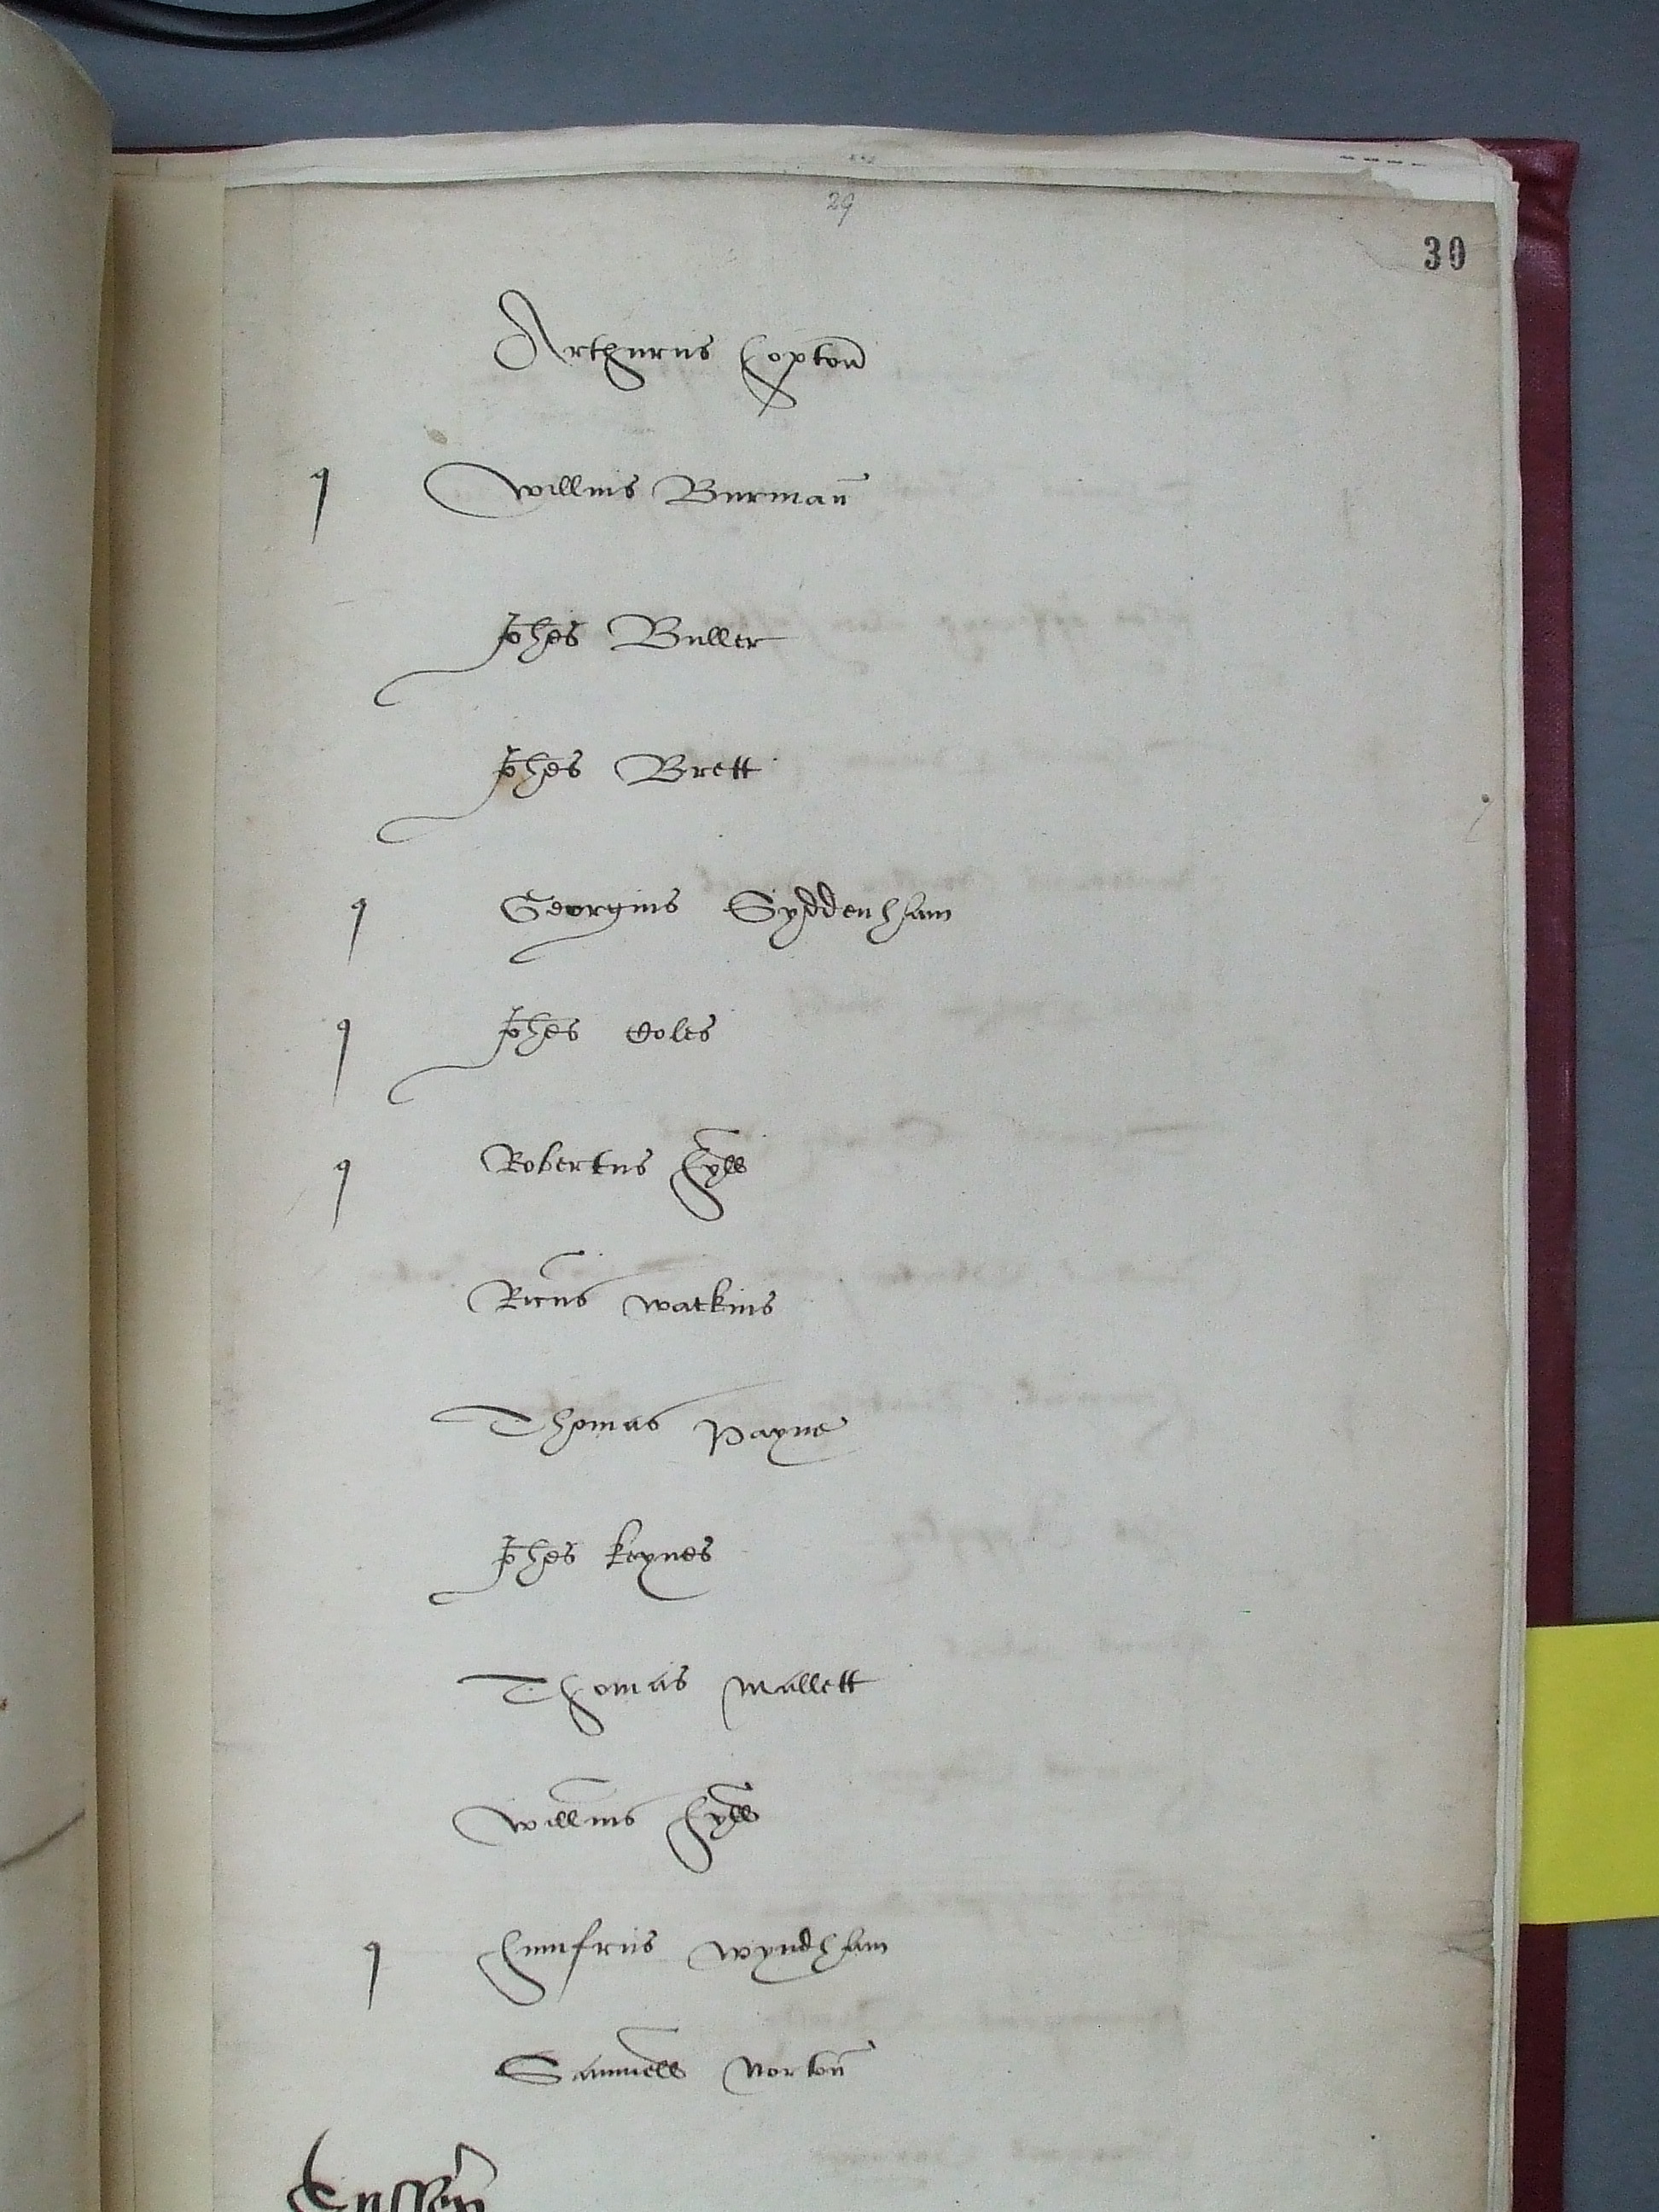 29
30
Arthurus Hopton
q Willms Burman
Johes Buller
Johes Brett
q Georgius Syddenham
q Johes Coles
q Robertus Hyll
Ricus watkins
Thomas Payne
Johes keynes
Thomas Mallett
Willms Hyll
q Humfrius wyndham
Samuell Norton